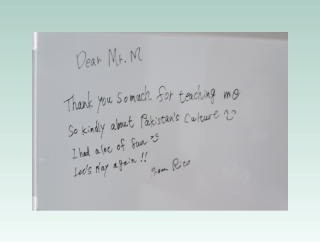 Dear Mr. M
Thank you so much for teaching me
So kindly about Pakistan's Culture
I had a lot of fun
Let's play again!!
from Rico